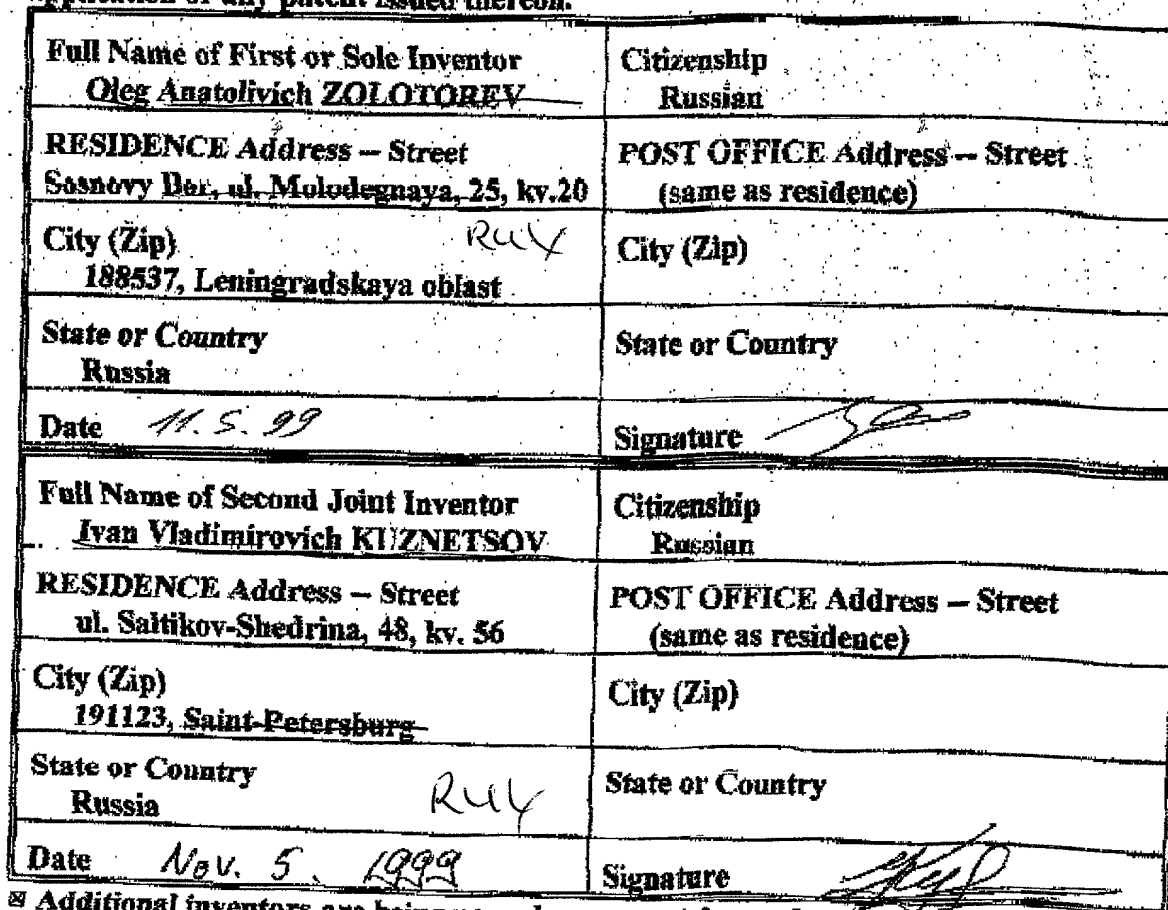 application or any patent issued thereon.
Full Name of First or Sole Inventor
Oleg Anatolivich ZOLOTOREV
Citizenship
Russian
RESIDENCE Address – Street
Sosnovy Bor, ul. Molodegnaya, 25, kv.20
POST OFFICE Address – Street
(same as residence)
City (Zip) RUX
188537, Leningradskaya oblast
City (Zip)
State or Country
Russia
State or Country
Date 11.5.99
Signature
Full Name of Second Joint Inventor
Ivan Vladimirovich KUZNETSOV
Citizenship
Russian
RESIDENCE Address – Street
ul. Saltikov-Shedrina, 48, kv. 56
POST OFFICE Address – Street
(same as residence)
City (Zip)
191123, Saint-Petersburg
City (Zip)
State or Country
Russia RUX
State or Country
Date Nov. 5. 1999
Signature
☒ Additional inventors are being